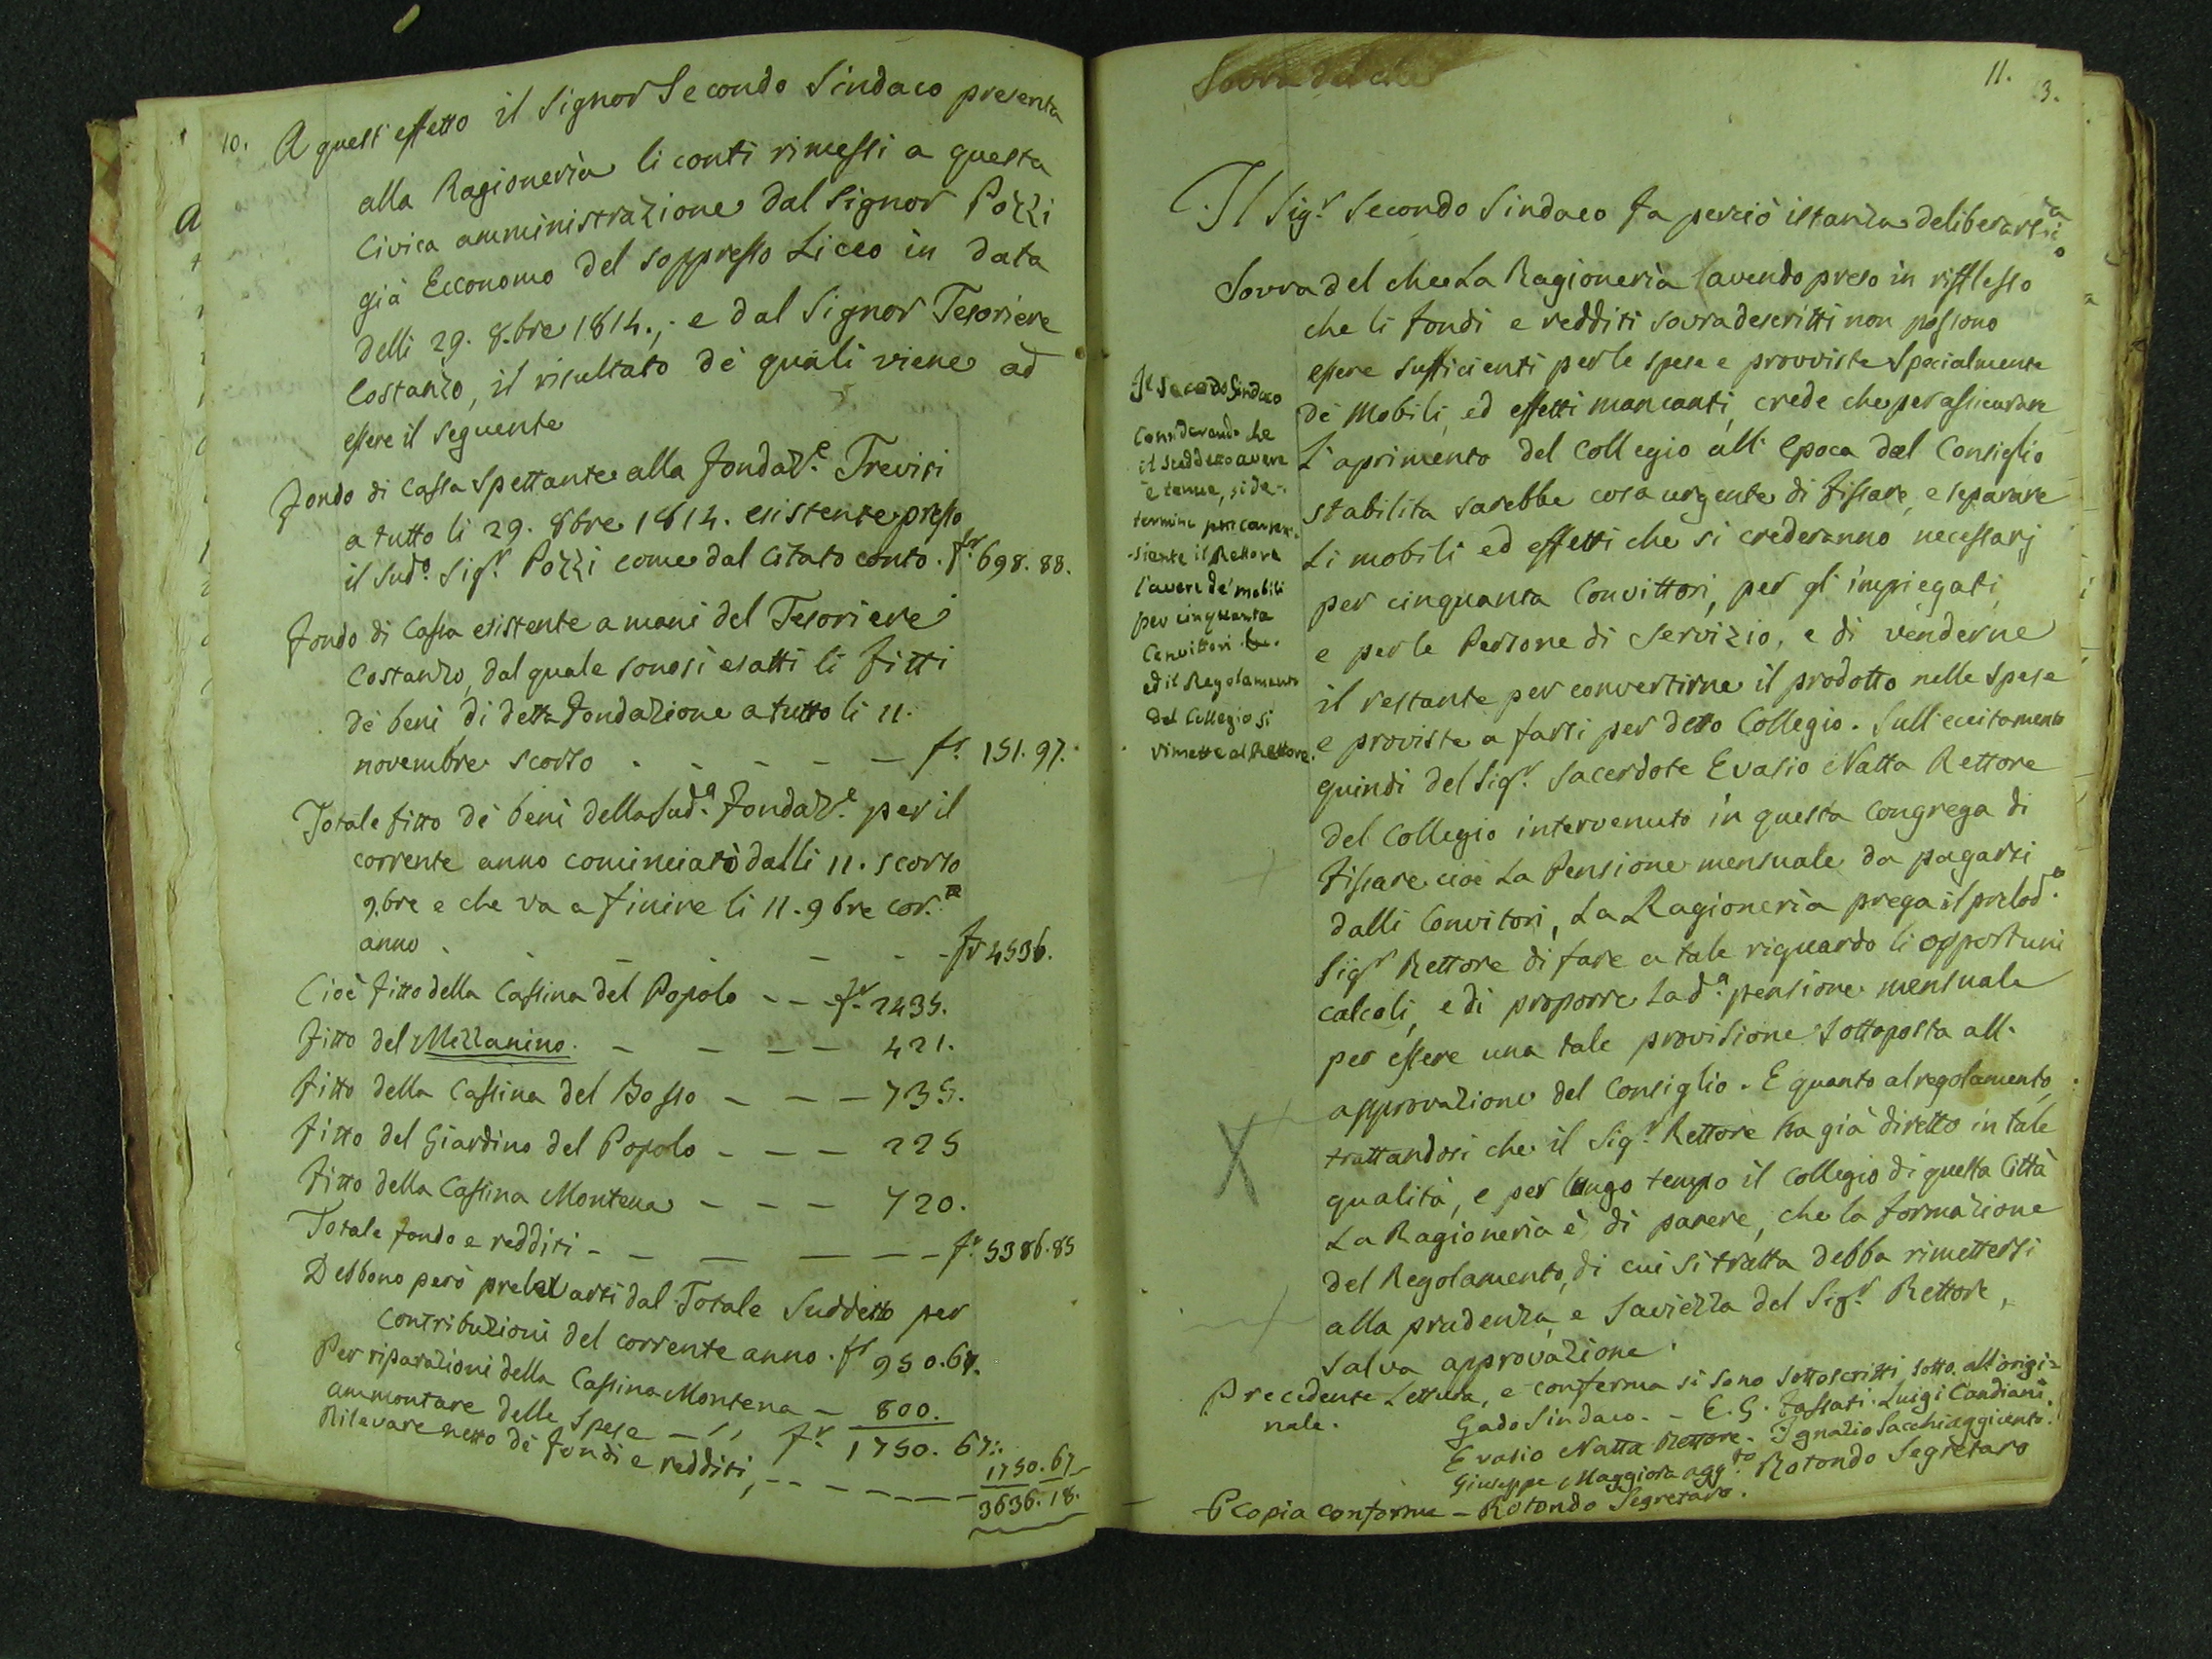 10.
A quest'effetto il Signor Secondo Sindaco presenta
alla Ragioneria li conti rimessi a questa
Civica amministrazione dal Signor Pozzi
già Ecconomo del soppresso Liceo in data
delli 29. 8.bre 1814.; e dal Signor Tesoriere
Costanzo, il risultato de' quali viene ad
essere il seguente
Fondo di Cassa Spettante alla fondaz.e Trevisi
a tutto li 29. 8bre 1814. esistente presso
il Sud.o Sig.r Pozzi come dal Citato conto. fr. 698. 88.
Fondo di Cassa esistente a mani del Tesoriere
Costanzo, dal quale sonosi esatti li fitti
de' beni di detta fondazione a tutto li 11.
novembre scorso - - - - - fr. 151. 97.
Totale fitto de' beni della Sud.a fondaz.e per il
corrente anno cominciato dalli 11. scorso
9.bre e che va a finire li 11. 9bre cor.te
anno - - - - - fr 4536.
Cioè fitto della Cassina del Popolo - - fr. 2435.
fitto del Mezzanino. - - - - 421.
fitto della Cassina del Bosso - - - 735.
fitto del Giardino del Popolo - - - 225
fitto della Cassina Montena - - - 720.
Totale fondo e redditi - - - - - - fr. 5386.85
Debbono però prelevarsi dal Totale Suddetto per
Contribuzioni del corrente anno. fr 950.67.
Per riparazioni della Cassina Montena - 800.
ammontare delle Spese - ,, fr. 1750. 67.
Rilevare netto de' fondi e redditi, - - - - - 1750. 67
3636. 18.
Sovra del che
11.
3.
Il Sig.r Secondo Sindaco fa perciò istanza deliberarsi
Sovra del che La Ragioneria avendo preso in rifflesso
che li fondi e redditi sovradescritti non possono
essere sufficienti per le spese e provviste Specialmente
de' Mobili, ed effetti mancanti, crede che per assicurare
L'aprimento del Collegio all'Epoca dal Consiglio
stabilita sarebbe cosa urgente di fissare, e separare
Li mobili ed effetti che si crederanno necessarj
per cinquanta Convittori, per gl'impiegati,
e per le Persone di Servizio, e di venderne
il restante per convertirne il prodotto nelle Spese
e proviste a farsi per detto Collegio. Sull'eccitamento
quindi del Sig.r Sacerdote Evasio Natta Rettore
del Collegio intervenuto in questa Congrega di
fissare cioè La Pensione mensuale da pagarsi
dalli Convitori, La Ragioneria prega il prelod.o
Sig.r Rettore di fare a tale riguardo li opportuni
calcoli, e di proporre La d.a pensione mensuale
per essere una tale provisione Sottoposta all'
approvazione del Consiglio. E quanto al regolamento,
trattandosi che il Sig.r Rettore ha già diretto in tale
qualità, e per lungo tempo il Collegio di questa Città
La Ragioneria è di parere, che la formazione
del Regolamento, di cui si tratta debba rimettersi
alla prudenza, e Saviezza del Sig.r Rettore,
Salva approvazione.
Precedente Lettura, e conferma si sono Sottoscritti, sotto all'origi=
nale. Gado Sindaco. - E. G. Fassati. Luigi Candiani.
Evasio Natta Rettore. Ignazio Sacchi aggiunto.
Giuseppe Maggiora agg.to Rotondo Segretaro
P Copia conforme - Rotondo Segretaro.
Il Secondo Sindaco
Considerando che
il Suddetto avere
è tenue, si de-
termini
-siente il Rettore
l'avere de' mobili
per cinquanta
Convittori
ed il Regolamento
del Collegio si
rimette al Rettore.